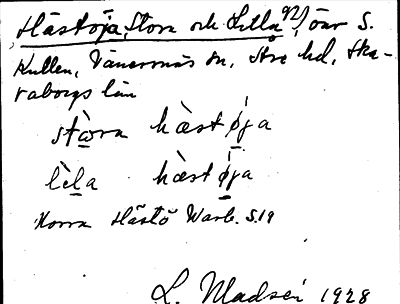 Hästöja, Stora och Lilla 92/, öar S.
Kullen, Vänersnäs sn, Åse hd, Ska-
raborgs län
stora hàstøja
lìla hàstøja
Norra Hästö Warb. S.19
L. Madsén 1928